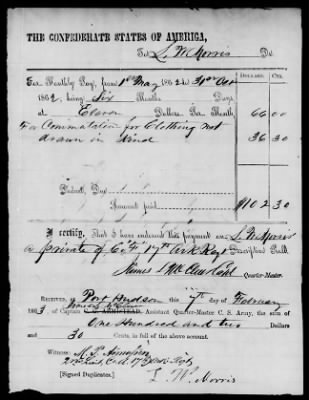 THE CONFEDERATE STATES OF AMERICA,
To L. W. Norris Dr.
DOLLARS. CTS.
For Monthly Pay, from 1st May 1862 to 31st Oct
1862, being Six Months Days,
at Eleven Dollars Per Month, 66 00
For Commutation for Clothing not 36 30
drawn in kind
Deduct, Due
Amount paid $102 30
I certify, That I have endorsed this payment on L. W. Norris
a private of Co 17th Ark Regt Descriptive Roll.
Quarter-Master.
RECEIVED, Port Hudson this 7th of February
1863, of Captain C. S. ARMISTEAD, Assistant Quarter-Master C. S. Army, the sum of
One Hundred and two Dollars
and 30 Cents, in full of the above account.
Witness:
17th Ark Regt
[Signed Duplicates.] L. W. Norris